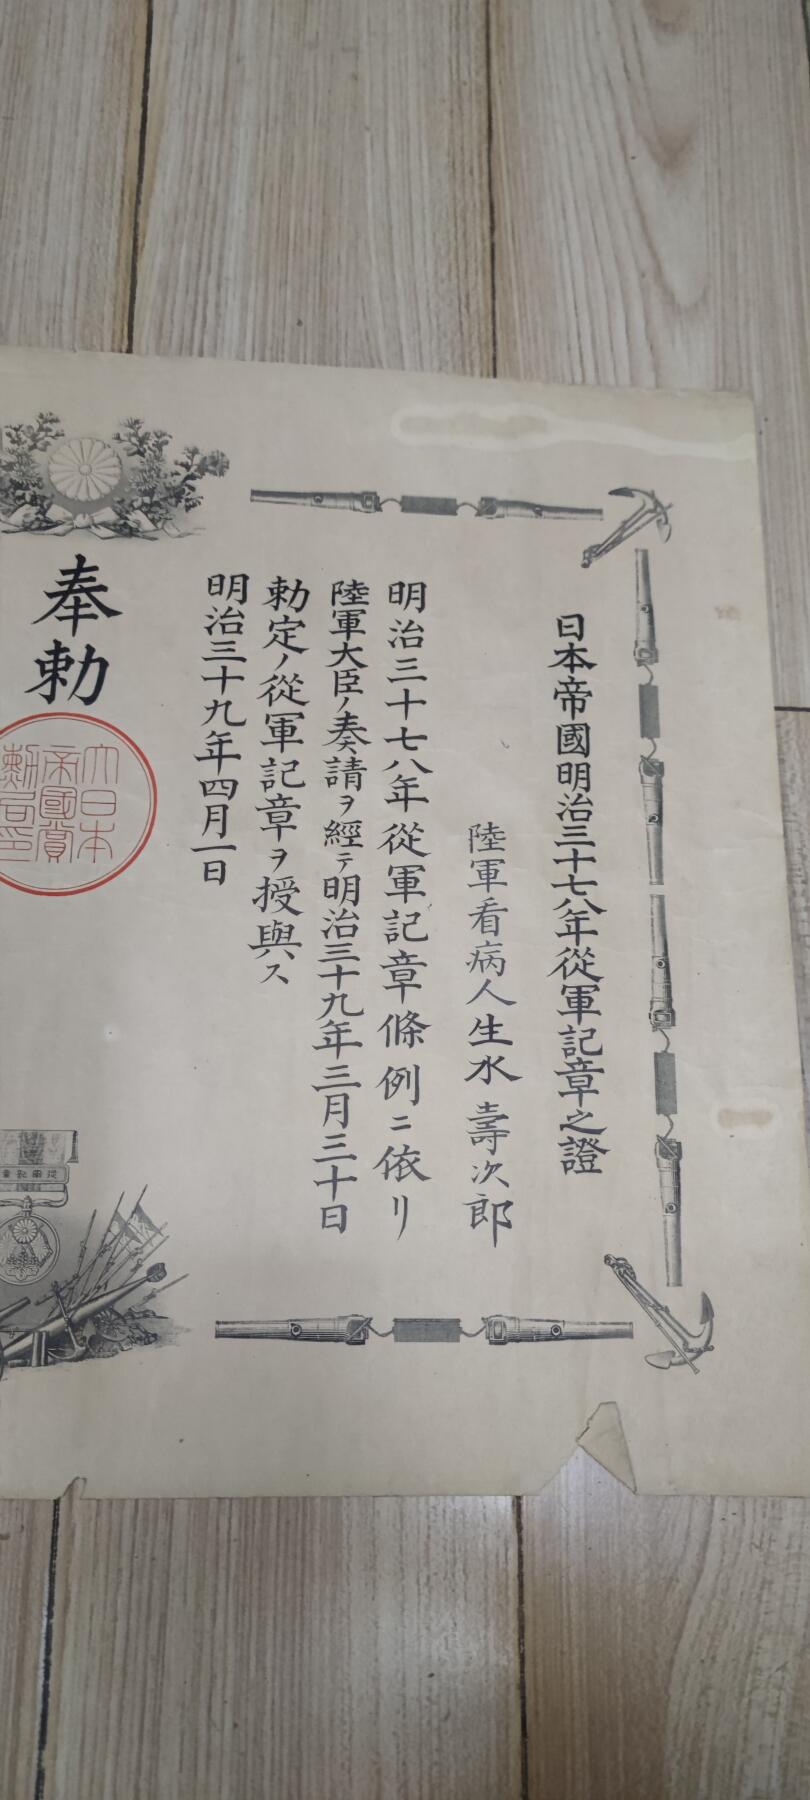 日本帝國明治三十七八年從軍記章之證
陸軍看病人生水壽次郎
明治三十七八年從軍記章條例ニ依リ
陸軍大臣ノ奏請ヲ經テ明治三十九年三月三十日
勅定ノ從軍記章ヲ授與ス
明治三十九年四月一日
奉勅
大日本
帝國賞
勲局印
從軍記章